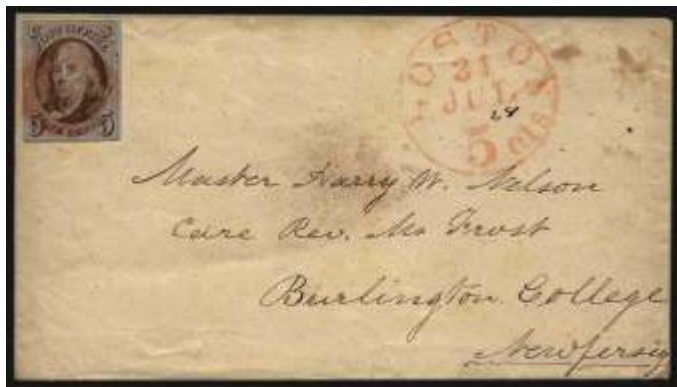 POST OFFICE
5 5
BOSTON
31
JUL
5 cts
Master Harry W. Nelson
Care Rev. Mr Frost
Burlington College
New Jersey